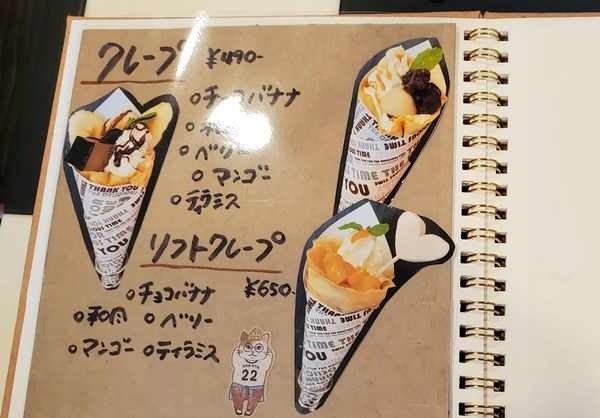 クレープ ¥490-
○チョコバナナ
○和
○ベリー
○マンゴー
○ティラミス
ソフトクレープ
¥650-
○チョコバナナ
○和風 ○ベリー
○マンゴー ○ティラミス
22
THANK YOU
THE DELICIOUS
TIME
YOU
TIME
YOU
TIME
YOU